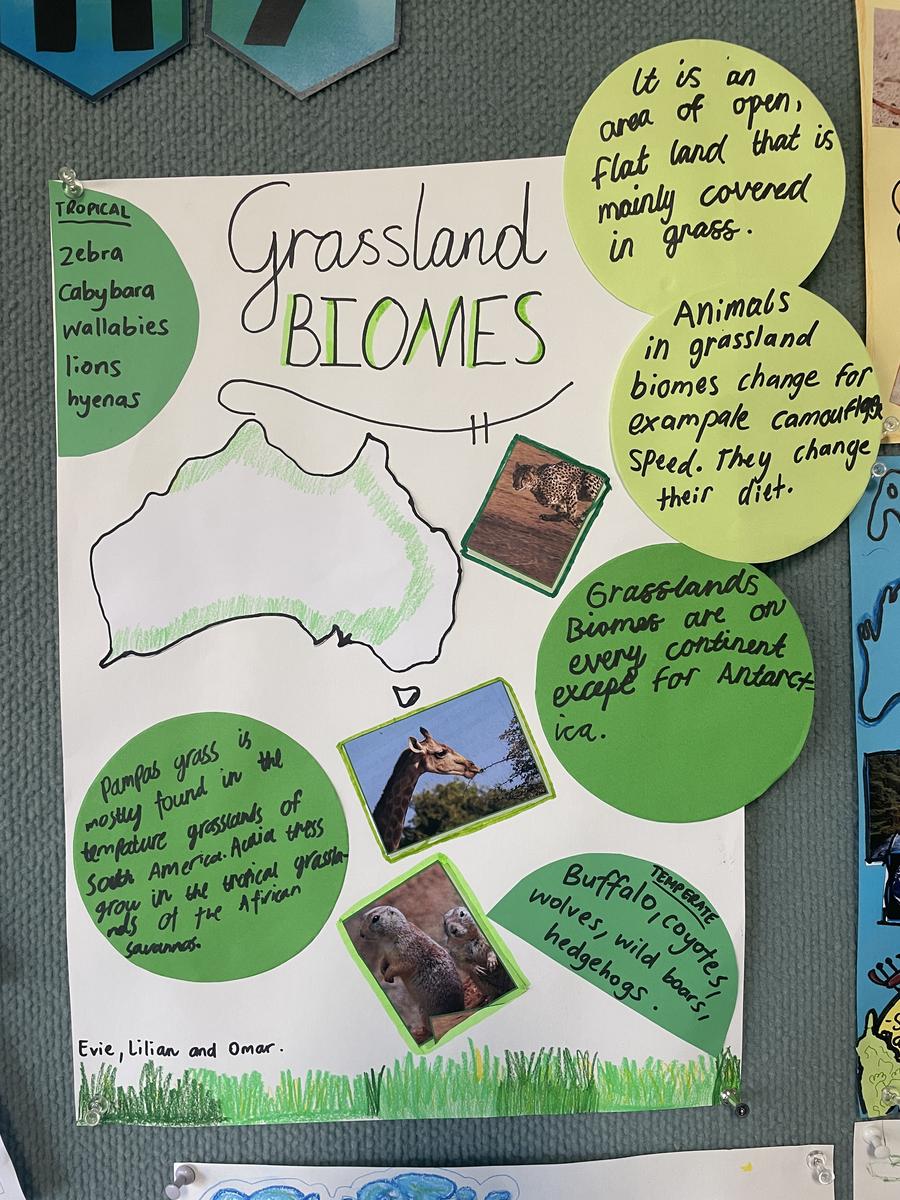 Grassland
BIOMES
TROPICAL
Zebra
Cabybara
wallabies
lions
hyenas
It is an
area of open,
flat land that is
mainly covered
in grass.
Animals
in grassland
biomes change for
exampale camouflage
speed. They change
their diet.
Grasslands
Biomes are on
every continent
except for Antarct-
ica.
Pampas grass is
mostly found in the
tempature grasslands of
South America. Acaia tress
grow in the tropical grassla-
nds of the African
savannas.
TEMPERATE
Buffalo, coyotes,
wolves, wild boars,
hedgehogs.
Evie, Lilian and Omar.